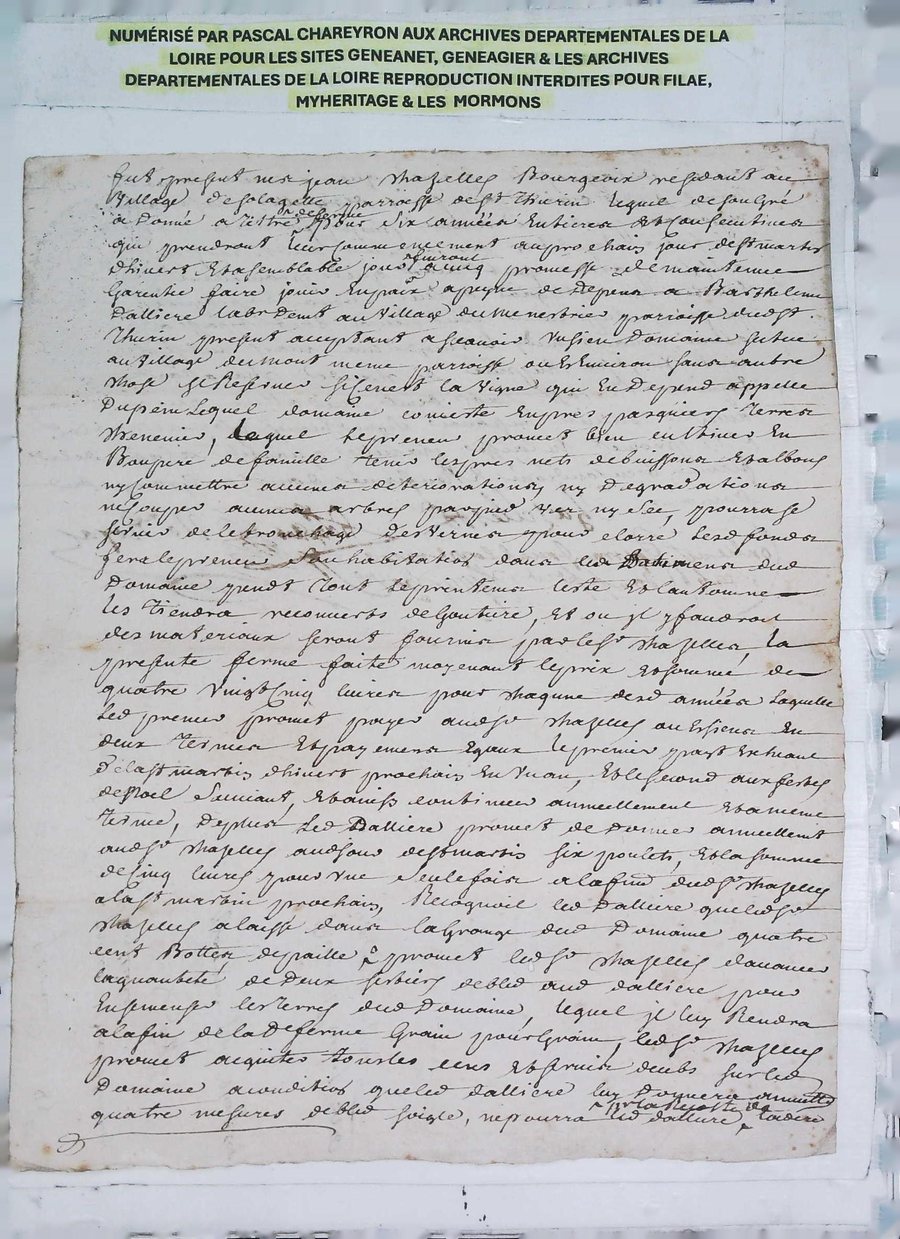 NUMÉRISÉ PAR PASCAL CHAREYRON AUX ARCHIVES DEPARTEMENTALES DE LA
LOIRE POUR LES SITES GENEANET, GENEAGIER & LES ARCHIVES
DEPARTEMENTALES DE LA LOIRE REPRODUCTION INTERDITES POUR FILAE,
MYHERITAGE & LES MORMONS
fut present jean Chazelles Bourgeois residant au
Village parroisse de St Thurin lequel de son gré
a Donné a Titre de ferme pour six années Entieres et Consecutives
qui prendront leur commencement au prochain jour de st martin
dhivert Et a semblable jour finiront promesse de maintenue
Garentie faire jouir En paix a peyne de Depens a Barthelemy
Dalliere labr Demt au Village parroisse dud St
Thurin present acceptant a scavoir Un sien Domaine situé
au Village dumont meme parroisse ou Environ sans autre
chose se Reserver si ce nest la Vigne qui En Depend appellé
Lequel domaine consiste En pres pasquiers Terres
lequel le preneur promet bien cultiver En
Bon pere de famille tenir les pres nets de buissons
ny Commettre aucunes deteriorations ny Degradations
ny Couper aucuns arbres par pied Ver ny Sec, pourra se
servir de lebronchage Des Vernes pour clorre lesd fonds
fera le preneur son habitation dans les Batimens dud
Domaine pendt Tout le printems lesté Et lautomne
les Tiendra recouverts de Goutiere, Et ou jl y faudroit
des materiaux seront fournis par led Sr Chazelles, la
presente ferme faite moyenant le prix Et somme de
quatre Vingt Cinq livres pour chaqune desd années Laquelle
Led preneur promet payer aud Sr Chazelles ou Es siens En
deux Termes Et payements Egaux le premier
de la St martin dhivert prochain En Un an, Et le second aux festes
de Noel Suivant, Et ainsy continuer annuellement Et a meme
Terme, De plus Led Dalliere promet de Donner annuellemt
aud Sr Chazelles aud jour de st martin six poulets, Et la somme
de Cinq livres pour Une seule fois dud Sr Chazelles
a la St martin prochain, led Dalliere que led Sr
Chazelles a laissé dans la Grange dud Domaine quatre
cent Bottes de paille promet led Sr Chazelles davancer
la quantité de Deux de bled aud dalliere pour
Ensemenser les Terres dud Domaine, lequel jl luy Rendra
a la fin de lad ferme Grain pour Grain, led Sr Chazelles
promet aquiter tous les cens Et servis deubs sur led
Domaine a condition que led dalliere luy Donnera annuellt
quatre mesures de bled soigle, ne pourra led dalliere